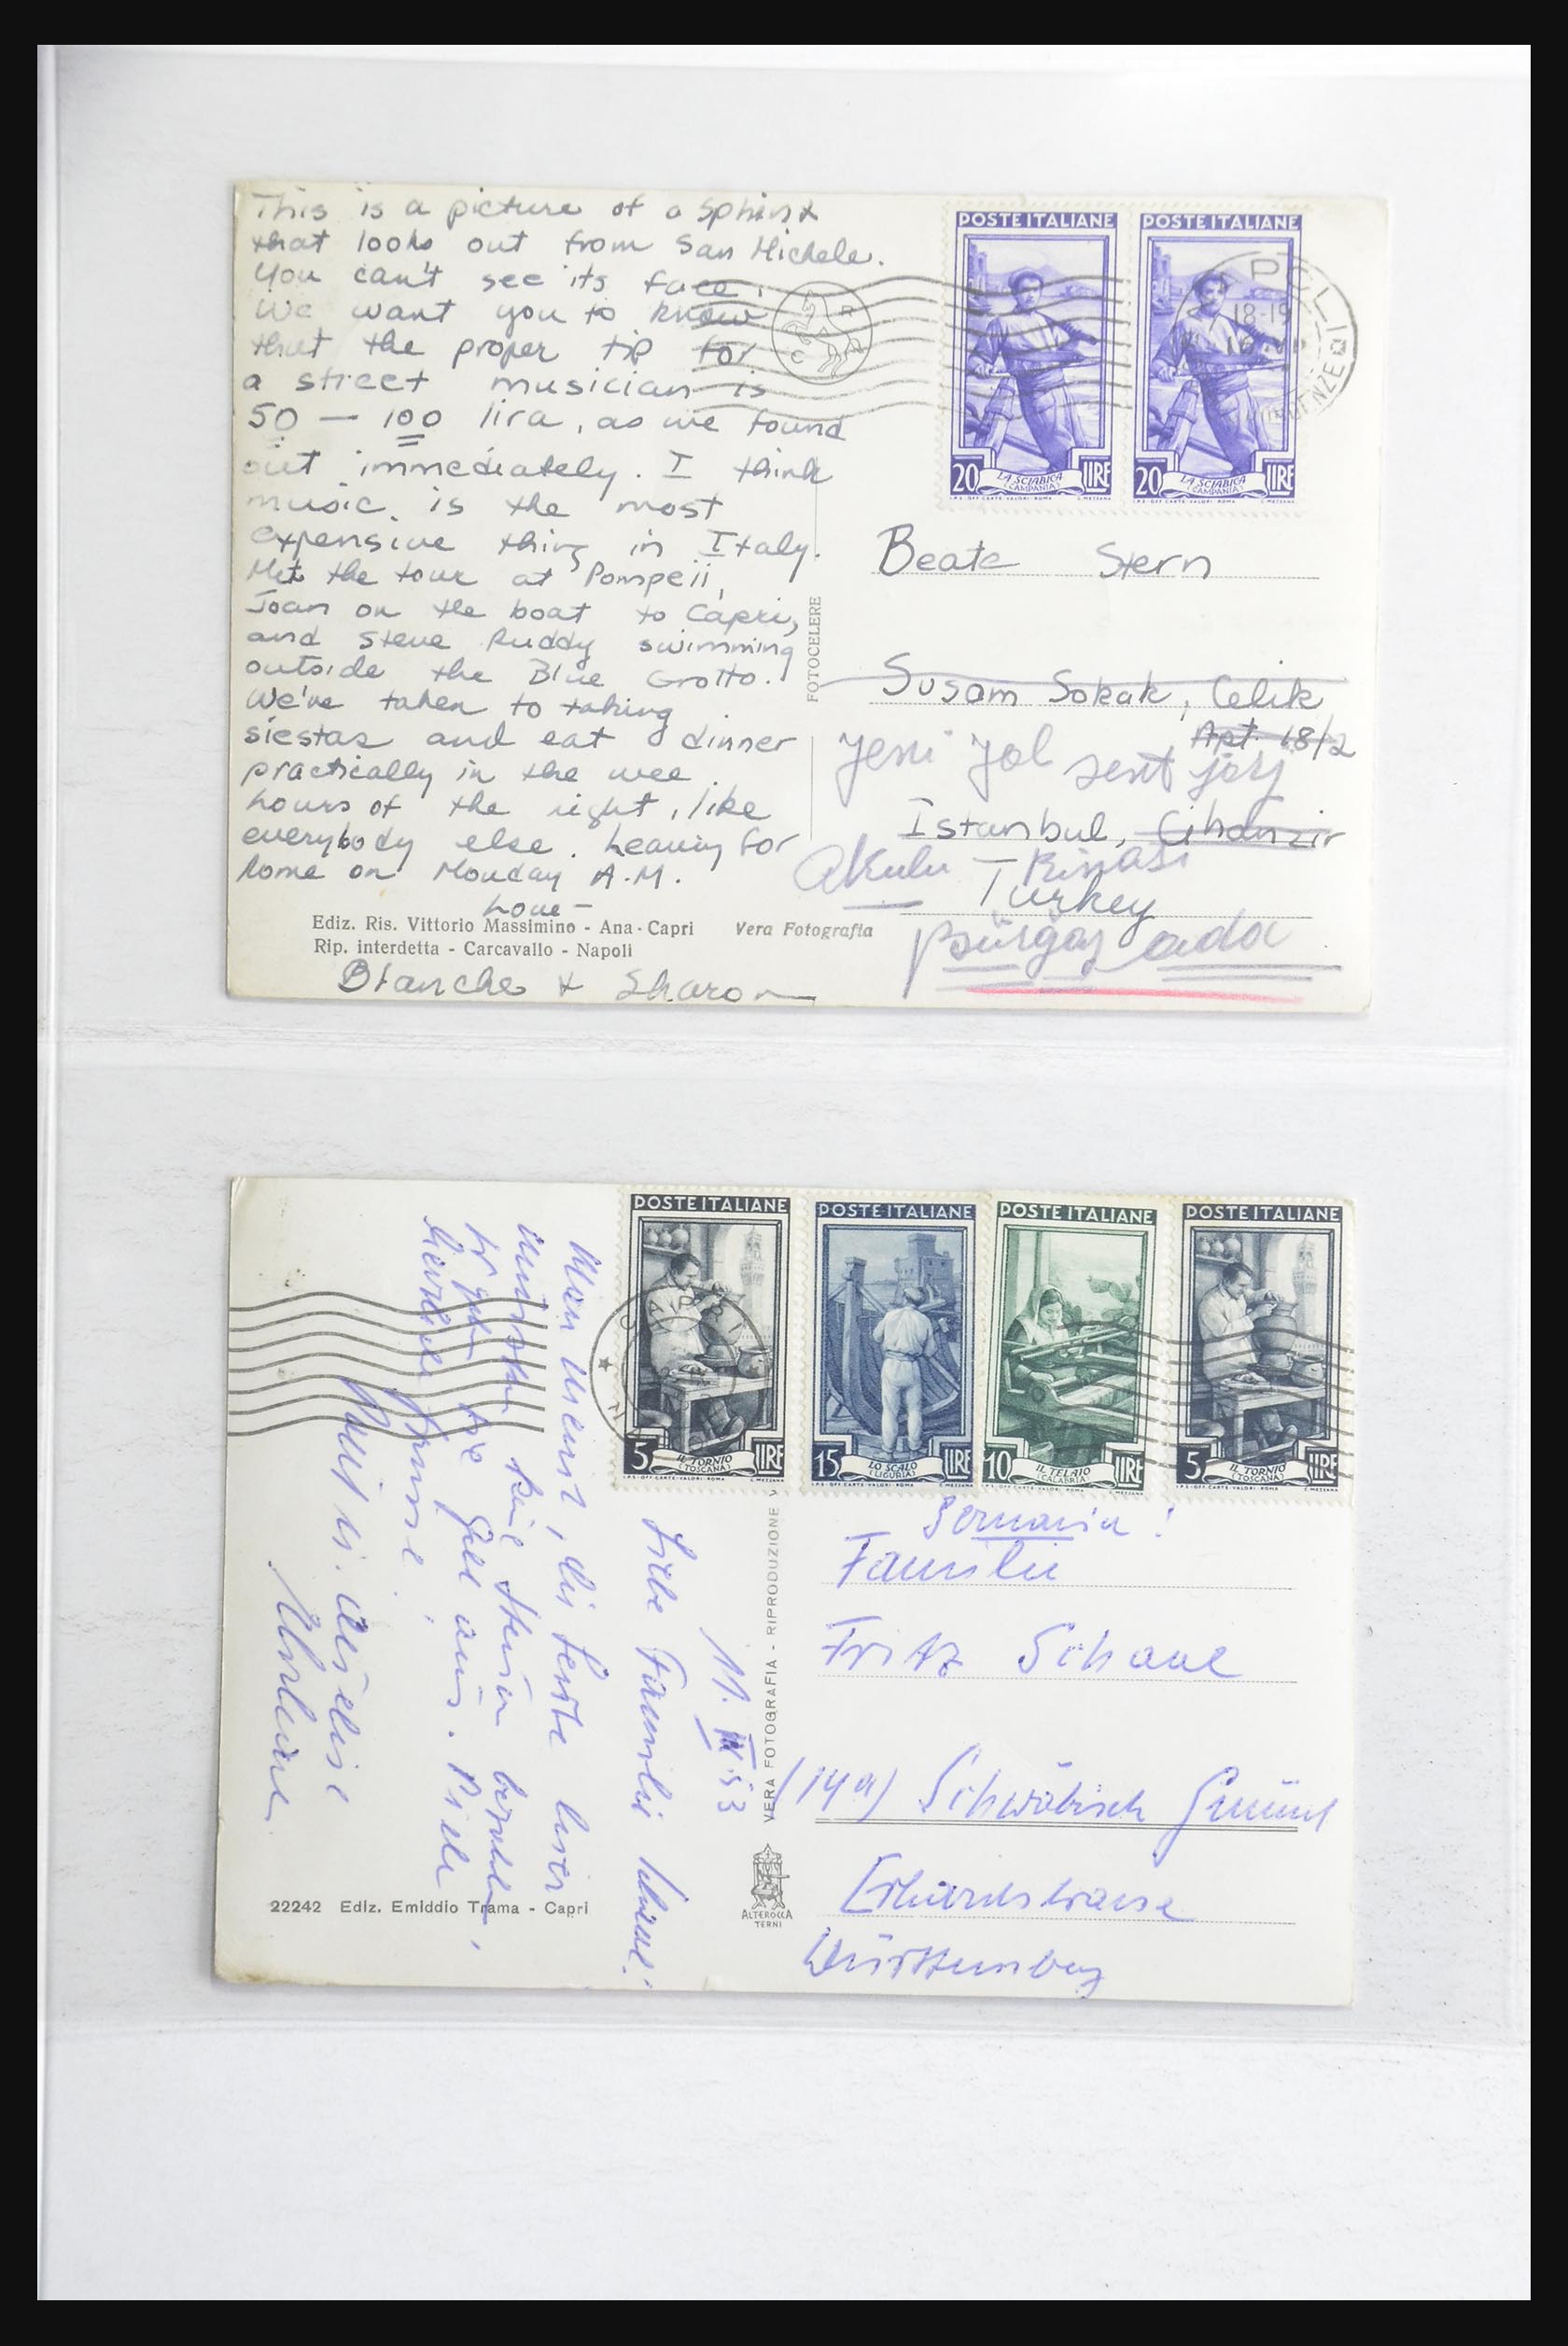 This is a picture of a Sphinx
that looks out from San Michele.
You can't see its face.
We want you to know
that the proper tip for
a street musician is
50 — 100 lira, as we found
out immediately. I think
music is the most
expensive thing in Italy.
Met the tour at Pompeii,
Joan on the boat to Capri,
and Steve Ruddy swimming
outside the Blue Grotto.
We've taken to taking
siestas and eat dinner
practically in the wee
hours of the night, like
everybody else. Leaving for
Rome on Monday A.M.
Love –
Blanche & Sharon
Ediz. Ris. Vittorio Massimino - Ana-Capri Vera Fotografia
Rip. interdetta - Carcavallo - Napoli
FOTOCELERE
POSTE ITALIANE
20 LA SCIABICA (CAMPANIA) LIRE
I.P.S. OFF. CARTE-VALORI-ROMA C. MEZZANA
POSTE ITALIANE
20 LA SCIABICA (CAMPANIA) LIRE
I.P.S. OFF. CARTE-VALORI-ROMA C. MEZZANA
18-19
Beate Stern
Susam Sokak, Celik
Apt. 18/2
Yeni Yol sent jorj
Istanbul, Cihanzir
Turkey
ada
POSTE ITALIANE
5 IL TORNIO (TOSCANA) LIRE
I.P.S.-OFF. CARTE-VALORI-ROMA C. MEZZANA
POSTE ITALIANE
15 LO SCALO (LIGURIA) LIRE
I.P.S.-OFF. CARTE-VALORI-ROMA C. MEZZANA
POSTE ITALIANE
10 IL TELAIO (CALABRIA) LIRE
I.P.S.-OFF. CARTE-VALORI-ROMA C. MEZZANA
POSTE ITALIANE
5 IL TORNIO (TOSCANA) LIRE
I.P.S.-OFF. CARTE-VALORI-ROMA C. MEZZANA
CAPRI
53
Liebe Familie
Man meint, die Leute hier
müssten keine Steuern
Geld aus. Viele
herzliche Grüsse
Germania!
Familie
Fritz
(14a) Schwäbisch Gmünd
Erhardstrasse
Württemberg
VERA FOTOGRAFIA - RIPRODUZIONE V
ALTEROCCA
TERNI
22242 Ediz. Emiddio Trama - Capri